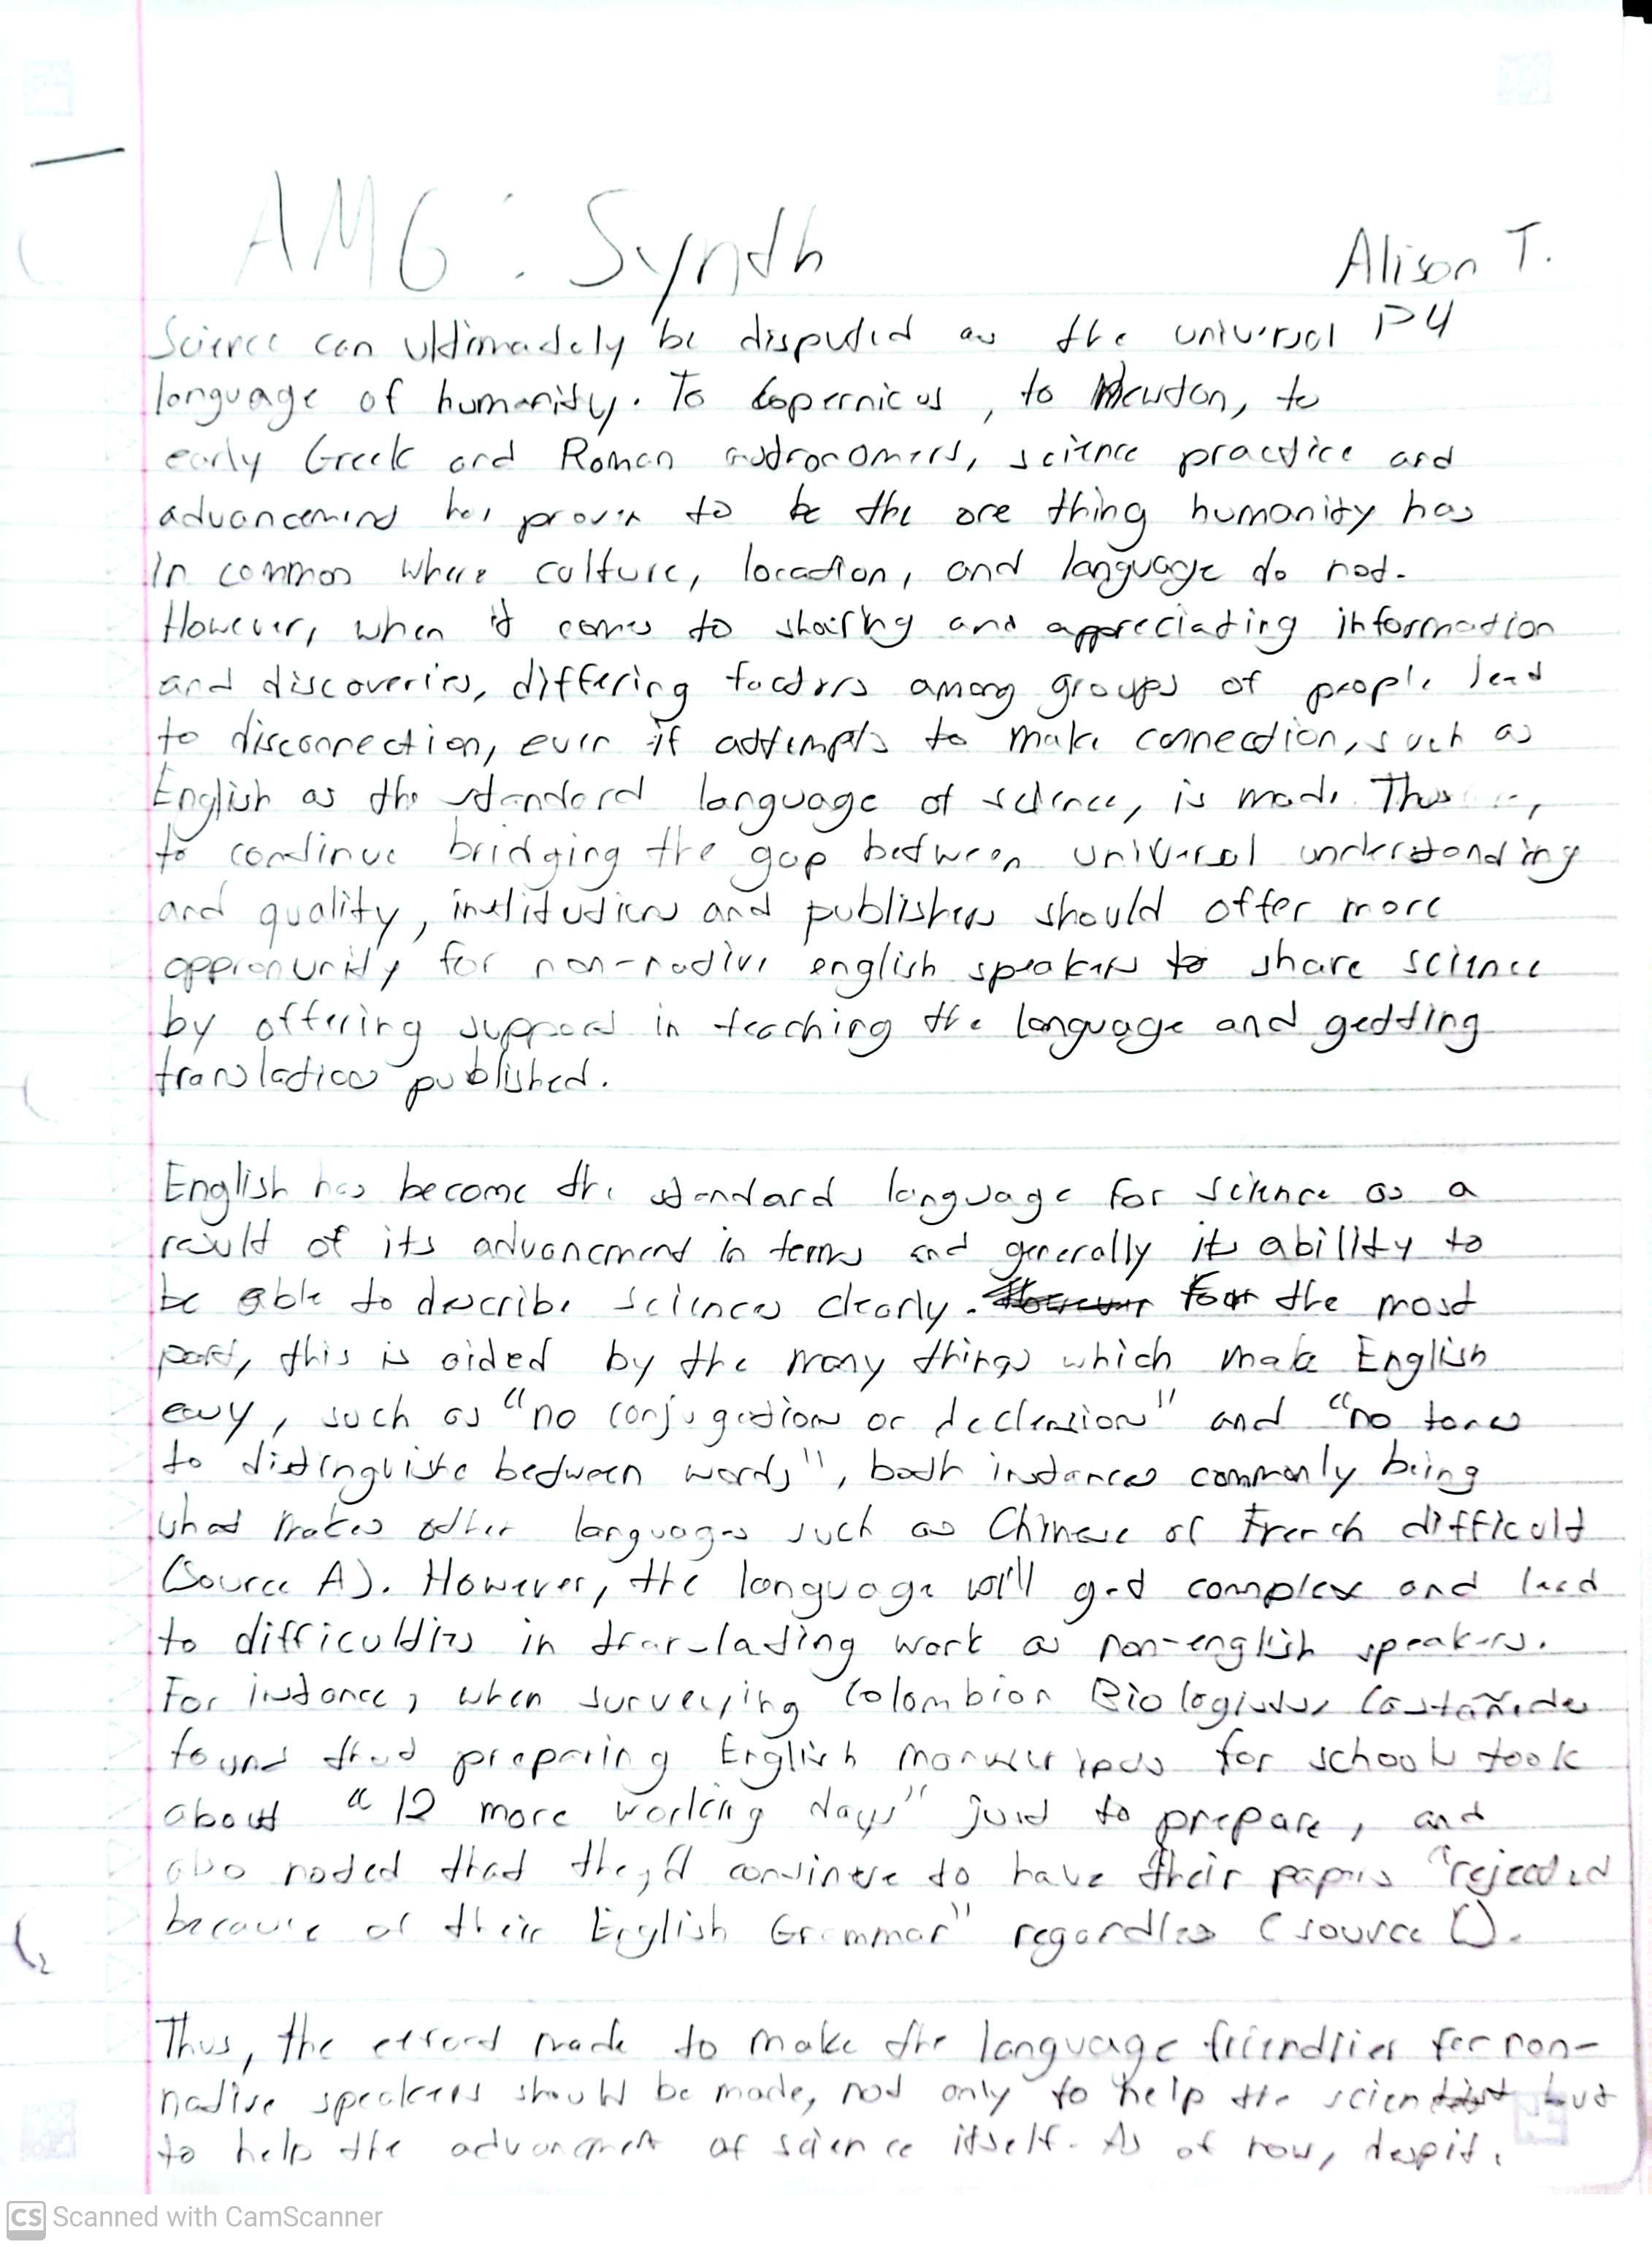 AMG: Synth
Alison T.
P4
Science can ultimadely be disputed as the universal
language of humanity. To Copernicus, to Newton, to
early Greek and Roman astronomers, science practice and
advancement has proven to be the one thing humanity has
in common where culture, location, and language do not.
However, when it comes to sharing and appreciating information
and discoveries, differing factors among groups of people lead
to disconnection, even if attempts to make connection, such as
English as the standard language of science, is made. Thus,
to continue bridging the gap between universal understanding
and quality, institutions and publishers should offer more
oppronunity for non-native english speakers to share science
by offering support in teaching the language and getting
translations published.
English has become the standard language for science as a
result of its advancment in terms and generally its ability to
be able to describe sciences clearly. For the most
part, this is aided by the many things which make English
easy, such as "no conjugations or declensions" and "no tones
to distinguish between words", both instances commonly being
what makes other languages such as Chinese or French difficult
(Source A). However, the language will get complex and lead
to difficulties in translating work as non-english speakers.
For instance, when surveying Colombian Biologists, Castañeda
found that preparing English manuscripts for schools took
about "12 more working days" just to prepare, and
also noted that they'd continue to have their papers "rejected
because of their English Grammar" regardless (source C).
Thus, the effort made to make the language friendlier for non-
native speakers should be made, not only to help the scientist but
to help the advancment of science itself. As of now, despite
CS Scanned with CamScanner